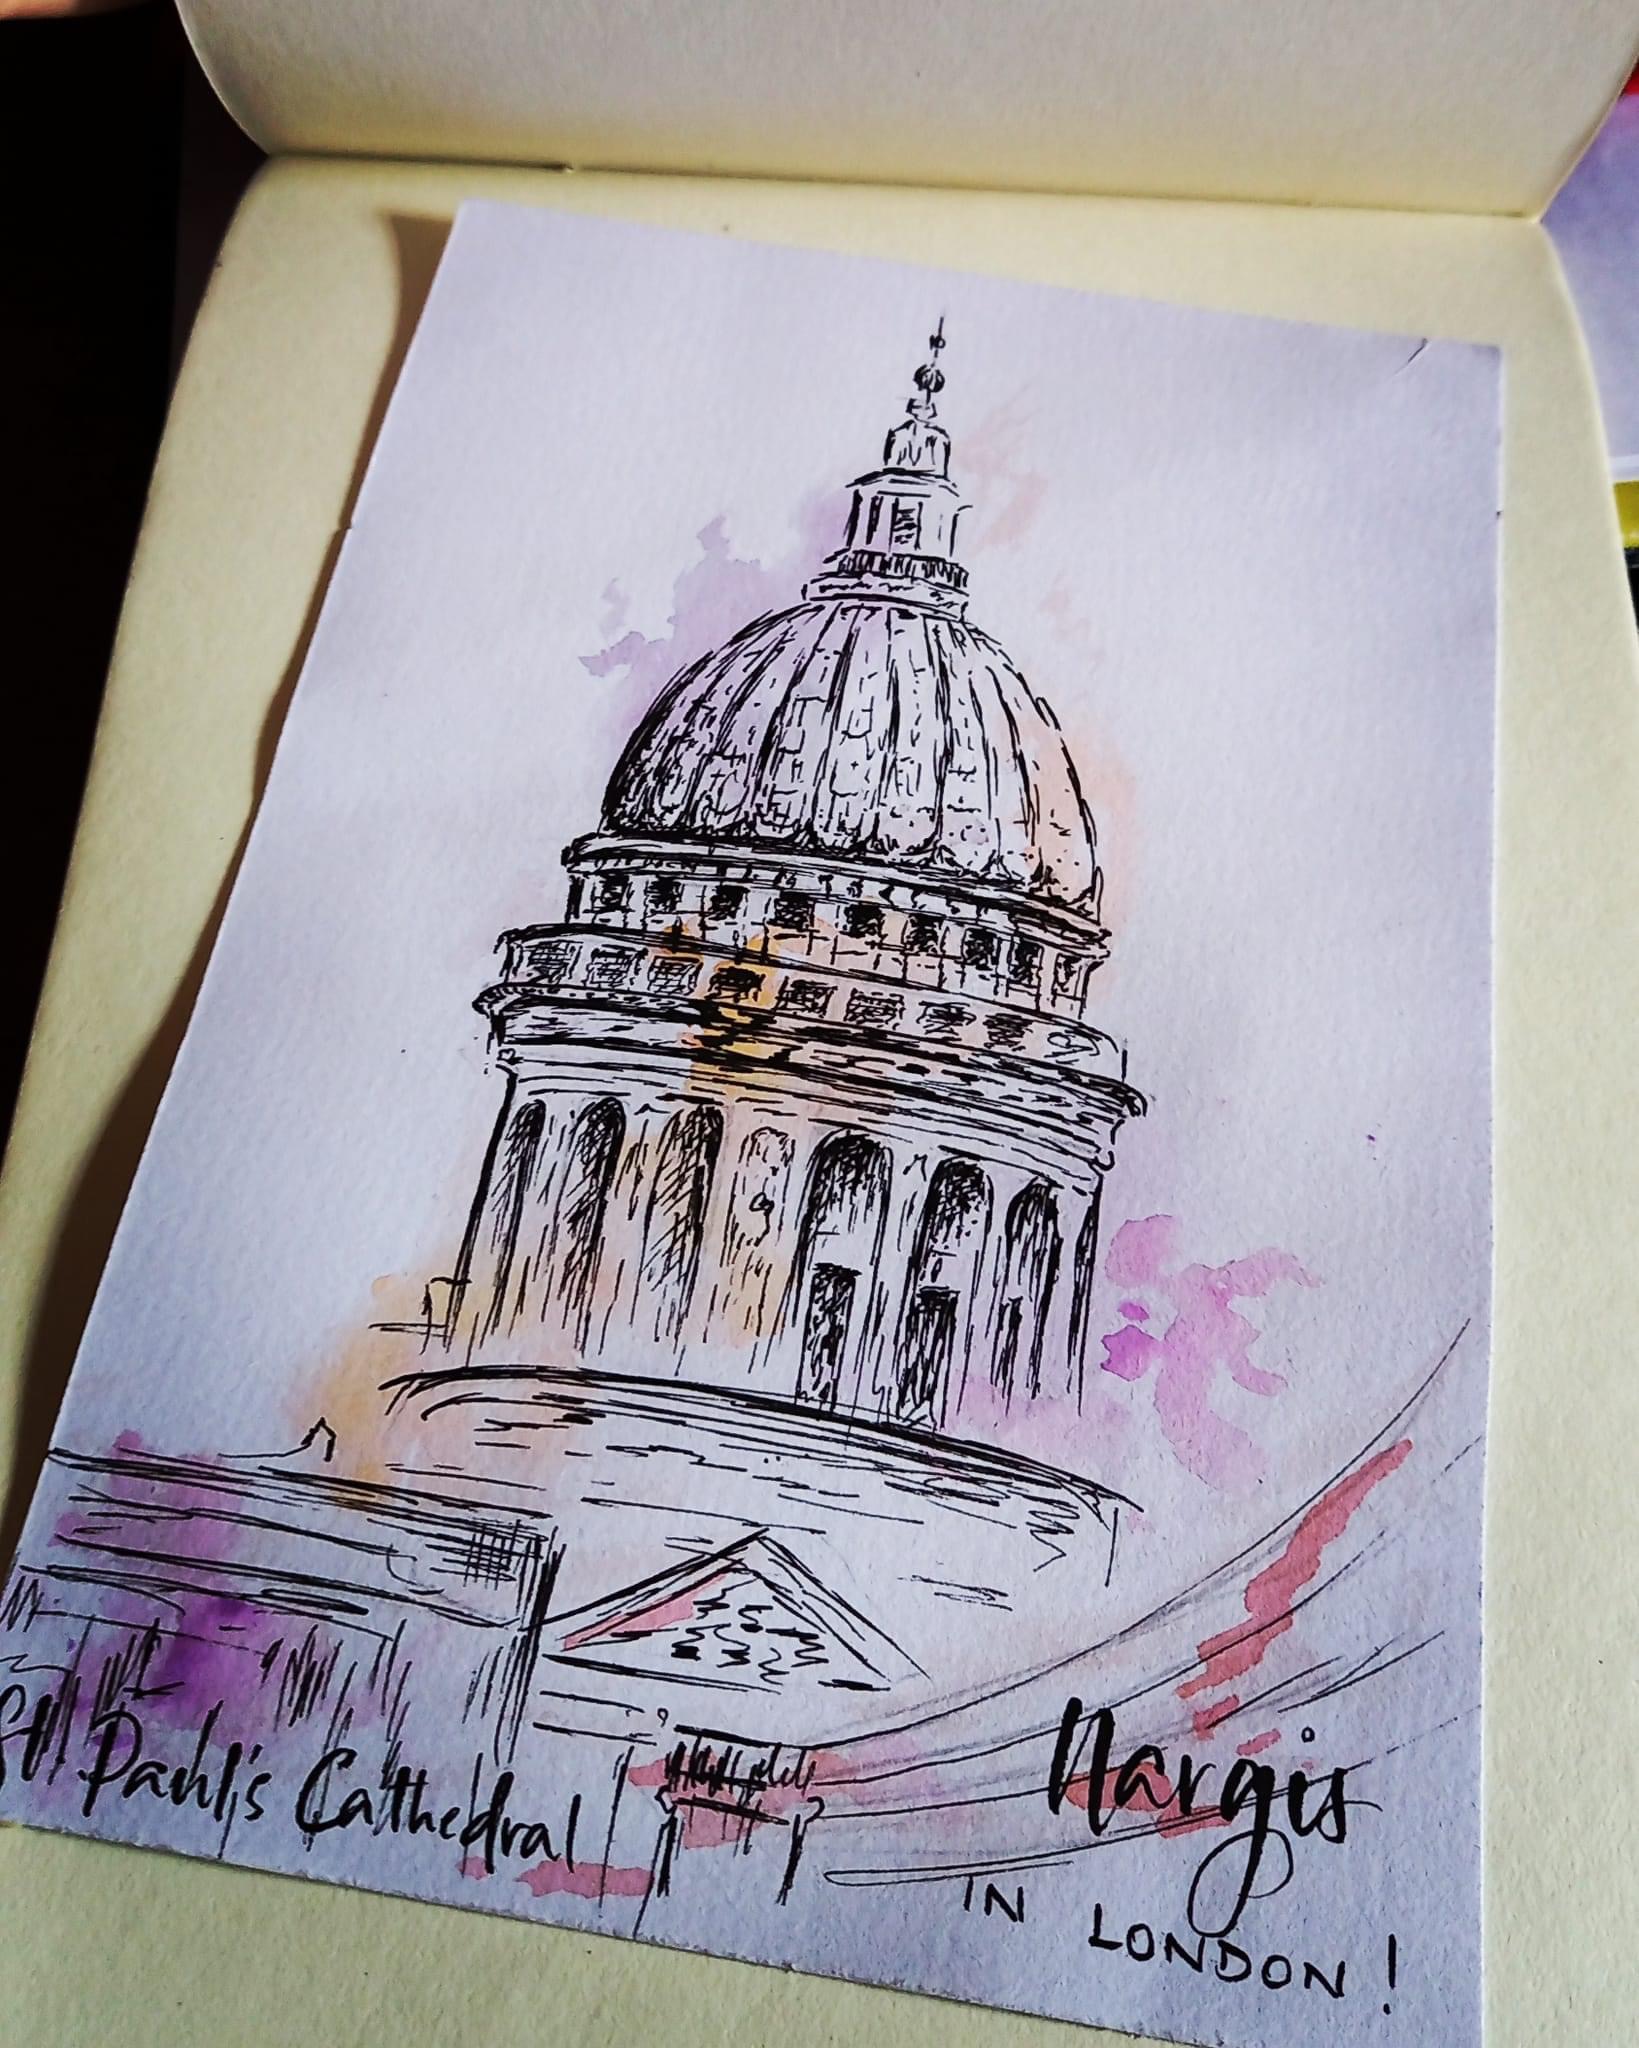 St. Paul's Cathedral
Nargis
IN LONDON!